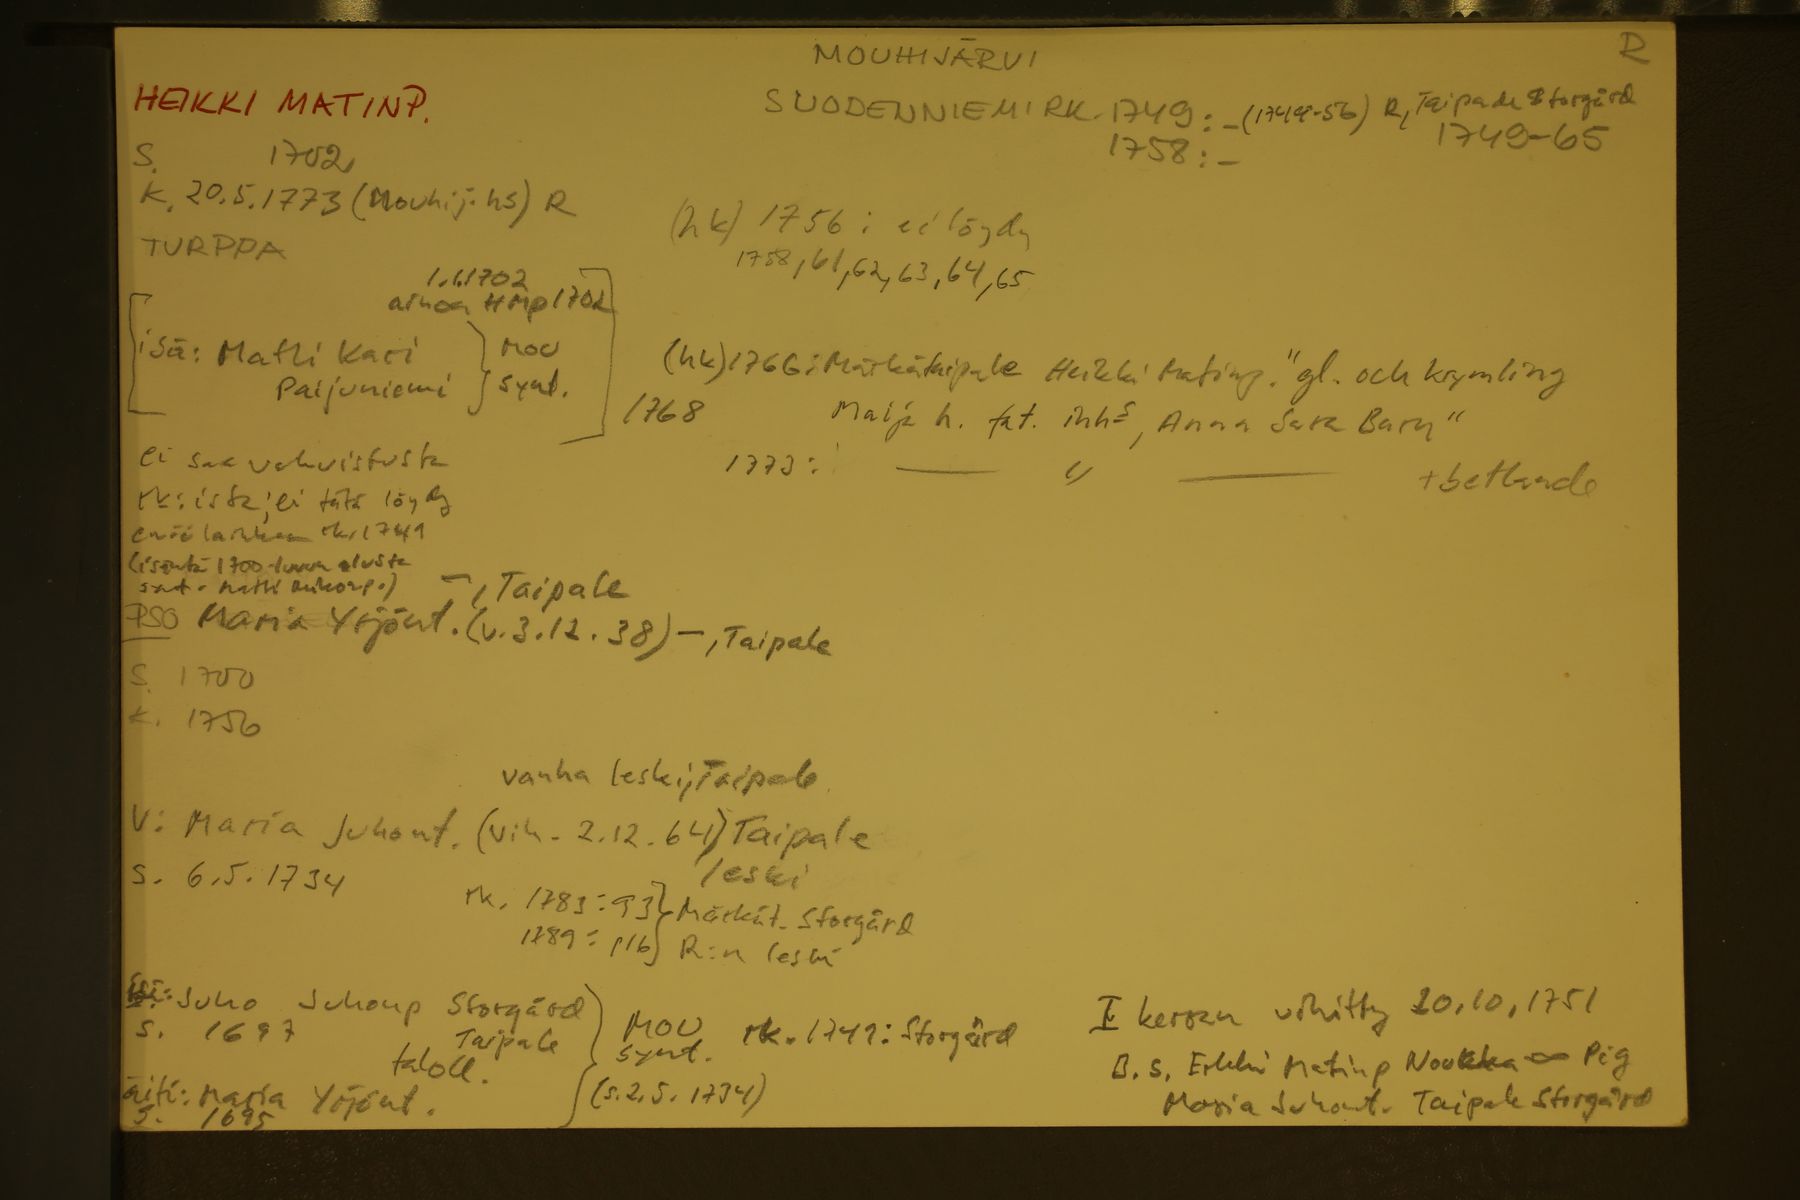 MOUHIJÄRVI
R
HEIKKI MATINP.
SUODENNIEMI RK. 1749: - (1749-56) R, Taipale Storgård
1758: - 1749-65
S. 1702
K. 20.5.1773 (Mouhij. hs) R
TURPPA
(hk) 1756: ei löydy
1758, 61, 62, 63, 64, 65
1.1.1702
ainoa HMp 1702
isä: Matti Kari
Paijuniemi
MOU
synt.
(hk) 1766: Märkätaipale Heikki Matinp. "gl. och krymling
1768 Maija h. fat. inhs, Anna Sara Barn"
1773: — " — + betlande
ei saa vahvistusta
rk:ista, ei tätä löydy
enää lainkaan rk. 1749
(isäntä 1700-luvun alusta
synt. Matti Mikonp.)
-, Taipale
PSO Maria Yrjönt. (v. 3.12.38) -, Taipale
S. 1700
K. 1756
vanha leski, Taipale
V: Maria Juhont. (vih. 2.12.64) Taipale
leski
S. 6.5.1734
rk. 1783: 93
1789: 116
Märkät. Storgård
R:n leski
isä: Juho Juhonp Storgård
Taipale
S. 1697
taloll.
äiti: Maria Yrjönt.
S. 1695
MOU
synt.
(s. 2.5.1734)
rk. 1749: Storgård
I kerran vihitty 20.10.1751
B.S. Erkki Matinp Noukka ∞ Pig
Maria Juhont. Taipale Storgård